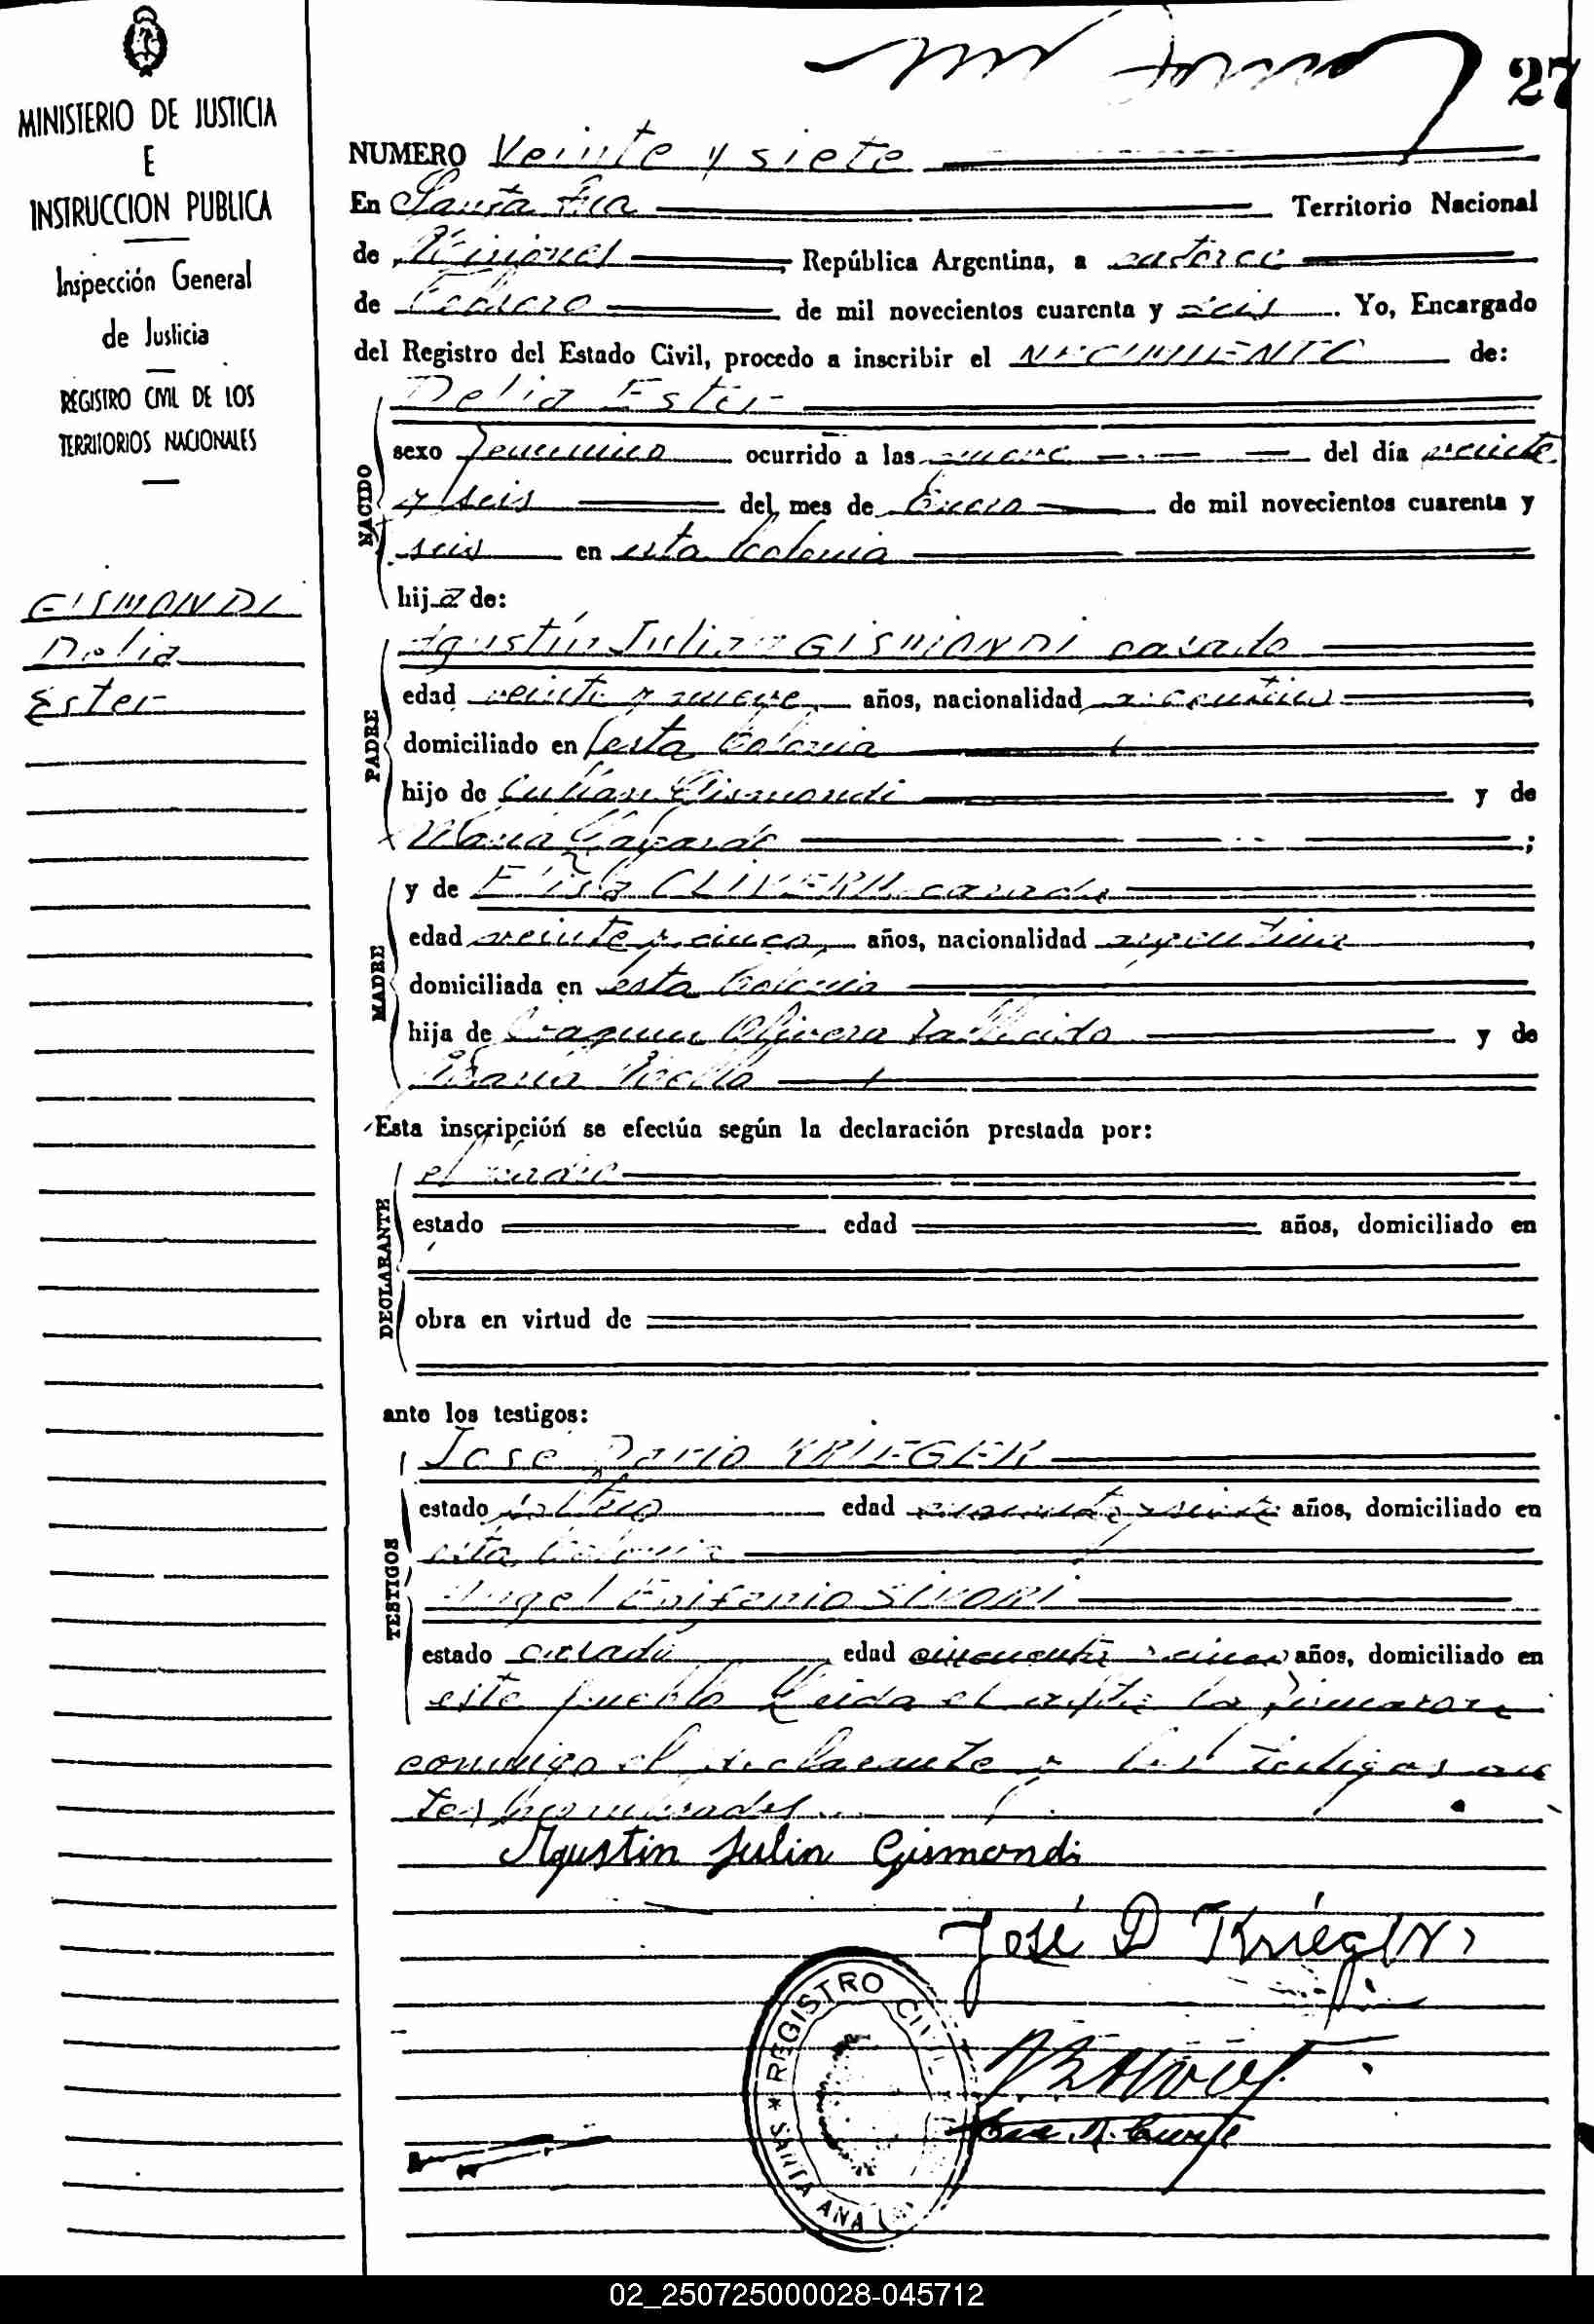 27
MINISTERIO DE JUSTICIA
E
INSTRUCCION PUBLICA
Inspección General
de Justicia
REGISTRO CIVIL DE LOS
TERRITORIOS NACIONALES
GISMONDI
Delia
Ester
NUMERO Veinte y siete
En Santa Ana Territorio Nacional
de Misiones República Argentina, a catorce
de Febrero de mil novecientos cuarenta y seis. Yo, Encargado
del Registro del Estado Civil, procedo a inscribir el NACIMIENTO de:
Delia Ester
NACIDO
sexo femenino ocurrido a las nueve del día veinte
y seis del mes de Enero de mil novecientos cuarenta y
seis en esta Colonia
hija de:
PADRE
Agustín Julian GISMONDI casado
edad veinte y nueve años, nacionalidad argentino
domiciliado en esta Colonia
hijo de Julián Gismondi y de
María ;
MADRE
y de Elisa OLIVERA casada
edad veinte y cinco años, nacionalidad argentina
domiciliada en esta Colonia
hija de Joaquin Olivera fallecido y de
María
Esta inscripción se efectúa según la declaración prestada por:
DECLARANTE
el padre
estado edad años, domiciliado en
obra en virtud de
ante los testigos:
TESTIGOS
José Dario KRIEGER
estado soltero edad años, domiciliado en
esta Colonia
Angel Epifanio SIMORI
estado casado edad cincuenta y cinco años, domiciliado en
este pueblo Leida el acta la firmaron
conmigo el declarante y los testigos an
tes nombrados.
Agustin Julin Gismondi
José D Krieger
REGISTRO CIVIL
SANTA ANA
02_250725000028-045712